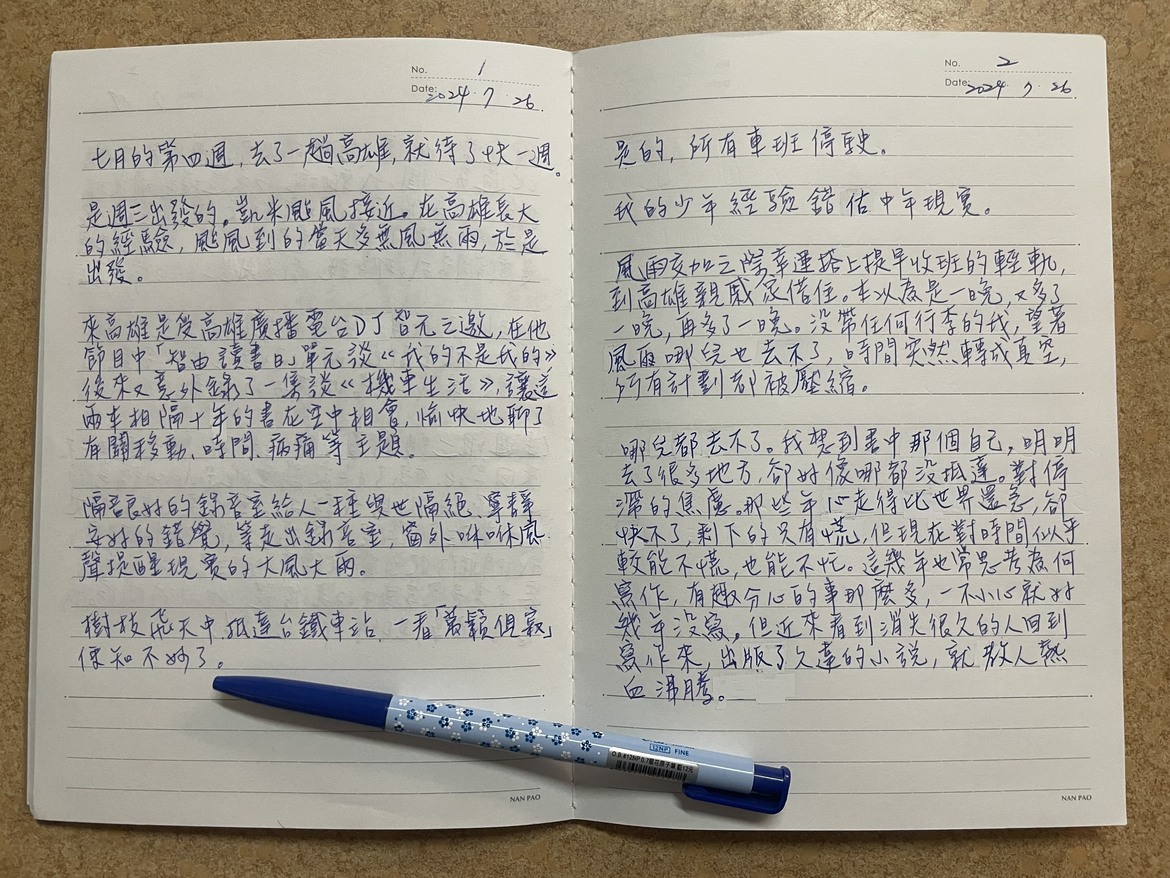 No. 1
Date: 2024 7 26
七月的第四週，去了一趟高雄，就待了快一週。
是週三出發的。凱米颱風接近。在高雄長大
的經驗，颱風到的當天多無風無雨，於是
出發。
來高雄是受高雄廣播電台DJ智元之邀，在他
節目中「智由讀書日」單元談《我的不是我的》
後來又意外錄了一集談《機車生活》，讓這
兩本相隔十年的書在空中相會，愉快地聊了
有關移動、時間、病痛等主題。
隔音良好的錄音室給人一種與世隔絕、寧靜
安好的錯覺，等走出錄音室，窗外咻咻風
聲提醒現實的大風大雨。
樹枝飛天中，抵達台鐵車站，一看「萬籟俱寂」
便知不妙了。
NAN PAO
No. 2
Date: 2024 7 26
是的，所有車班停駛。
我的少年經驗錯估中年現實。
風雨交加之際幸運搭上提早收班的輕軌，
到高雄親戚家借住。本以為是一晚，又多了
一晚，再多了一晚。沒帶任何行李的我，望著
風雨哪兒也去不了，時間突然轉成真空，
所有計劃都被壓縮。
哪兒都去不了。我想到書中那個自己，明明
去了很多地方，卻好像哪都沒抵達。對停
滯的焦慮。那些年心走得比世界還急，卻
快不了，剩下的只有慌，但現在對時間似乎
較能不慌，也能不忙。這幾年也常思考為何
寫作，有趣分心的事那麼多，一不小心就好
幾年沒寫，但近來看到消失很久的人回到
寫作來，出版了久違的小說，就教人熱
血沸騰。
NAN PAO
12NP FINE
O.B.#12NP 0.7櫻花原子筆 藍12元